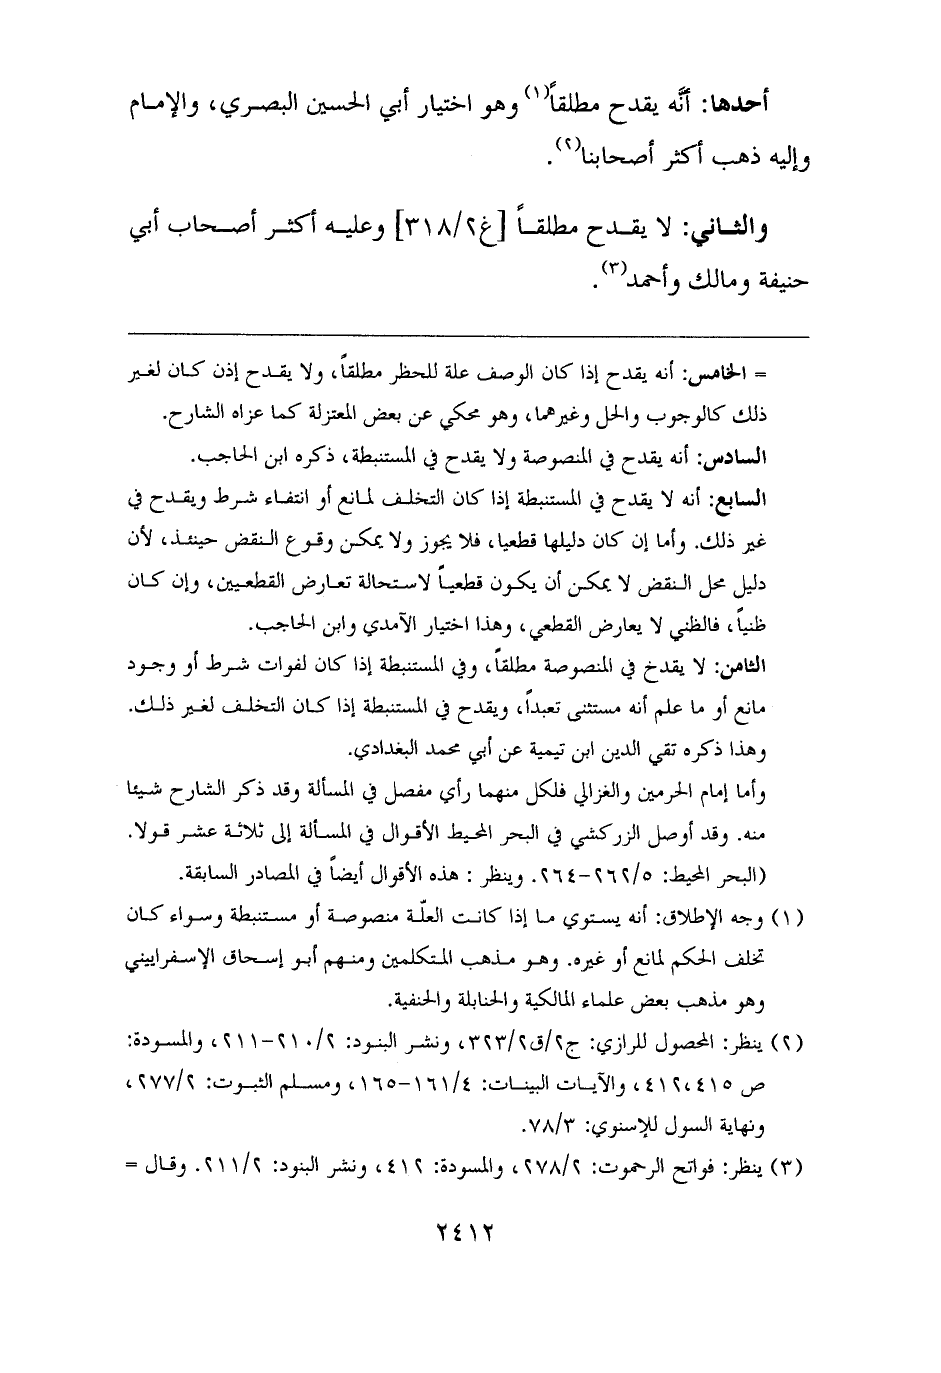 أحدها: أنَّه يقدح مطلقاً(١) وهو اختيار أبي الحسين البصري، والإمام
وإليه ذهب أكثر أصحابنا(٢).
والثاني: لا يقدح مطلقاً [غ٣١٨/٢] وعليه أكثر أصحاب أبي
حنيفة ومالك وأحمد(٣).
= الخامس: أنه يقدح إذا كان الوصف علة للحظر مطلقاً، ولا يقدح إذن كان لغير
ذلك كالوجوب والحل وغيرهما، وهو محكي عن بعض المعتزلة كما عزاه الشارح.
السادس: أنه يقدح في المنصوصة ولا يقدح في المستنبطة، ذكره ابن الحاجب.
السابع: أنه لا يقدح في المستنبطة إذا كان التخلف لمانع أو انتفاء شرط ويقدح في
غير ذلك. وأما إن كان دليلها قطعيا، فلا يجوز ولا يمكن وقوع النقض حينئذ، لأن
دليل محل النقض لا يمكن أن يكون قطعياً لاستحالة تعارض القطعيين، وإن كان
ظنياً، فالظني لا يعارض القطعي، وهذا اختيار الآمدي وابن الحاجب.
الثامن: لا يقدخ في المنصوصة مطلقاً، وفي المستنبطة إذا كان لفوات شرط أو وجود
مانع أو ما علم أنه مستثنى تعبداً، ويقدح في المستنبطة إذا كان التخلف لغير ذلك.
وهذا ذكره تقي الدين ابن تيمية عن أبي محمد البغدادي.
وأما إمام الحرمين والغزالي فلكل منهما رأي مفصل في المسألة وقد ذكر الشارح شيئا
منه. وقد أوصل الزركشي في البحر المحيط الأقوال في المسألة إلى ثلاثة عشر قولا.
(البحر المحيط: ٢٦٢/٥-٢٦٤. وينظر : هذه الأقوال أيضاً في المصادر السابقة.
(١) وجه الإطلاق: أنه يستوي ما إذا كانت العلّة منصوصة أو مستنبطة وسواء كان
تخلف الحكم لمانع أو غيره. وهو مذهب المتكلمين ومنهم أبو إسحاق الإسفراييني
وهو مذهب بعض علماء المالكية والحنابلة والحنفية.
(٢) ينظر: المحصول للرازي: ج٢/ق٣٢٣/٢، ونشر البنود: ٢١٠/٢-٢١١، والمسودة:
ص ٤١٢،٤١٥، والآيات البينات: ١٦١/٤-١٦٥، ومسلم الثبوت: ٢٧٧/٢،
ونهاية السول للإسنوي: ٧٨/٣.
(٣) ينظر: فواتح الرحموت: ٢٧٨/٢، والمسودة: ٤١٢، ونشر البنود: ٢١١/٢. وقال =
٢٤١٢